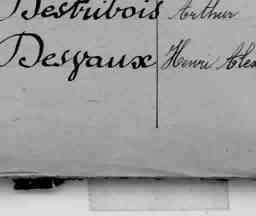 Destribois Arthur
Desvaux Henri Alex